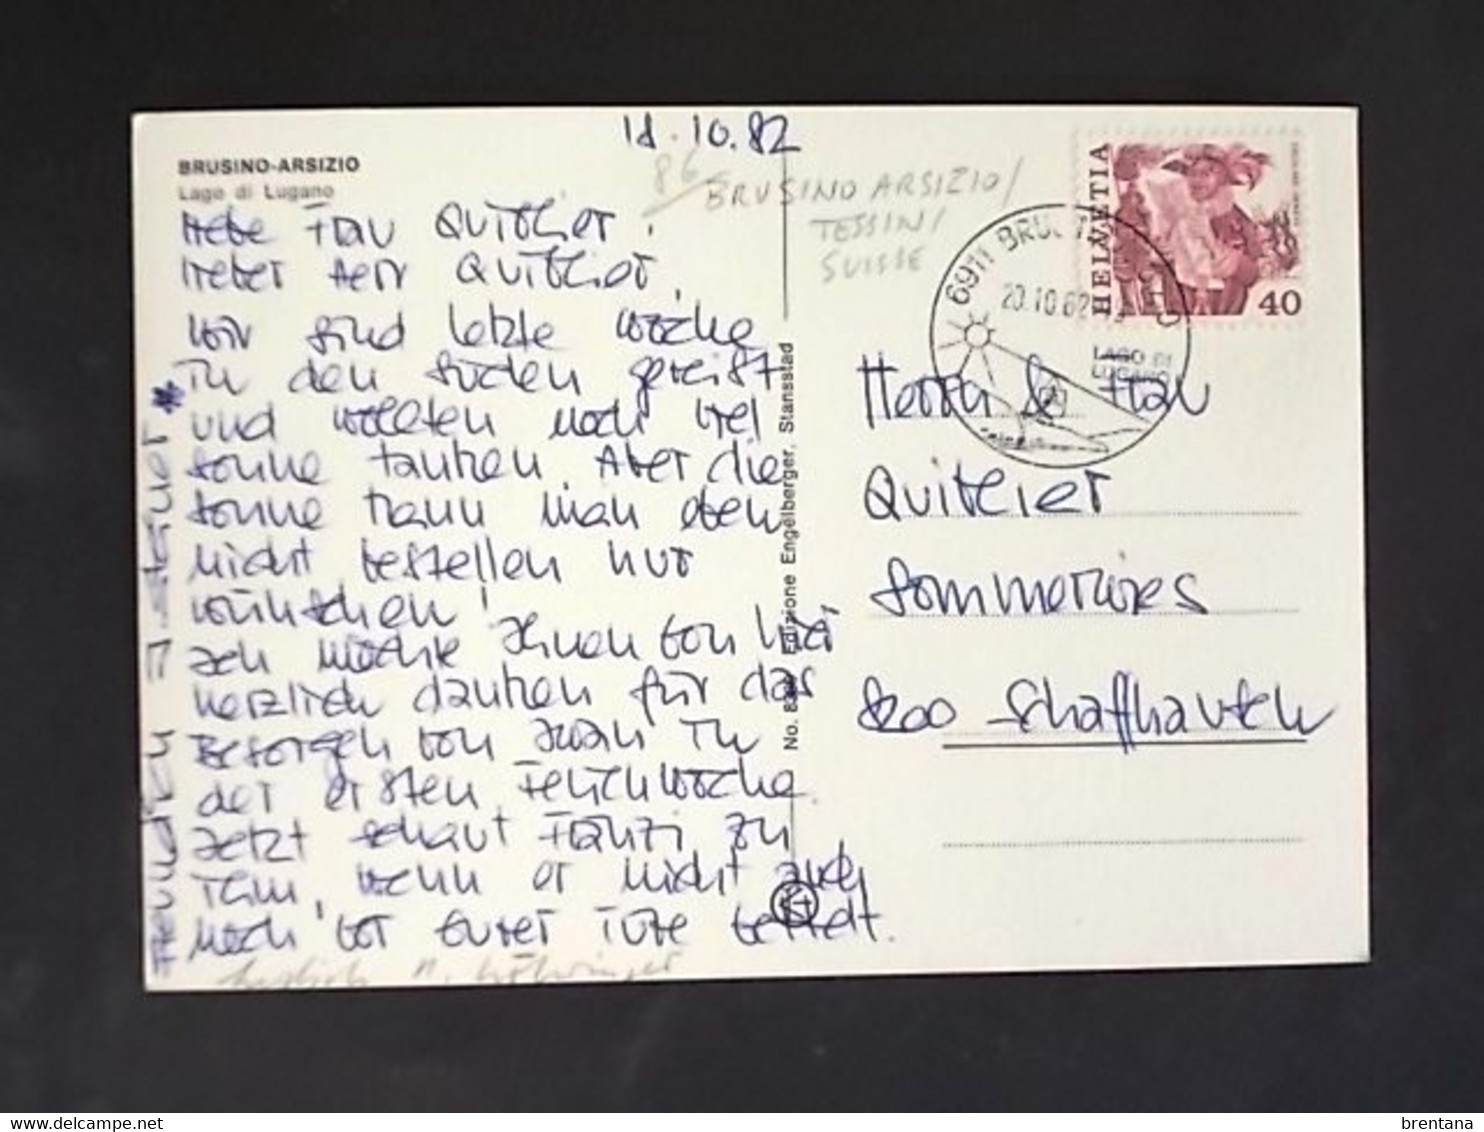 18.10.82
BRUSINO-ARSIZIO
Lago di Lugano
86
BRUSINO ARSIZIO/
TESSIN/
SUISSE
HELVETIA
40
6911 BRUSINO
20.10.82
LAGO DI
LUGANO
Liebe Frau Quitlier,
lieber Herr Quitlier,
wir sind letzte Woche
in den Süden gereist
und wollten noch viel
Sonne tanken. Aber die
Sonne kann man eben
nicht bestellen nur
wünschen!
Ich möchte Ihnen von hier
herzlich danken für das
Besorgen von Iwan in
der ersten Ferienwoche.
Jetzt schaut Fränzi zu
ihm, wenn er nicht auch
noch vor Eurer Türe bettelt.
Freundlich
herzlich
No.
Edizione Engelberger, Stansstad
Herrn & Frau
Quitlier
8200 Schaffhausen
brentana